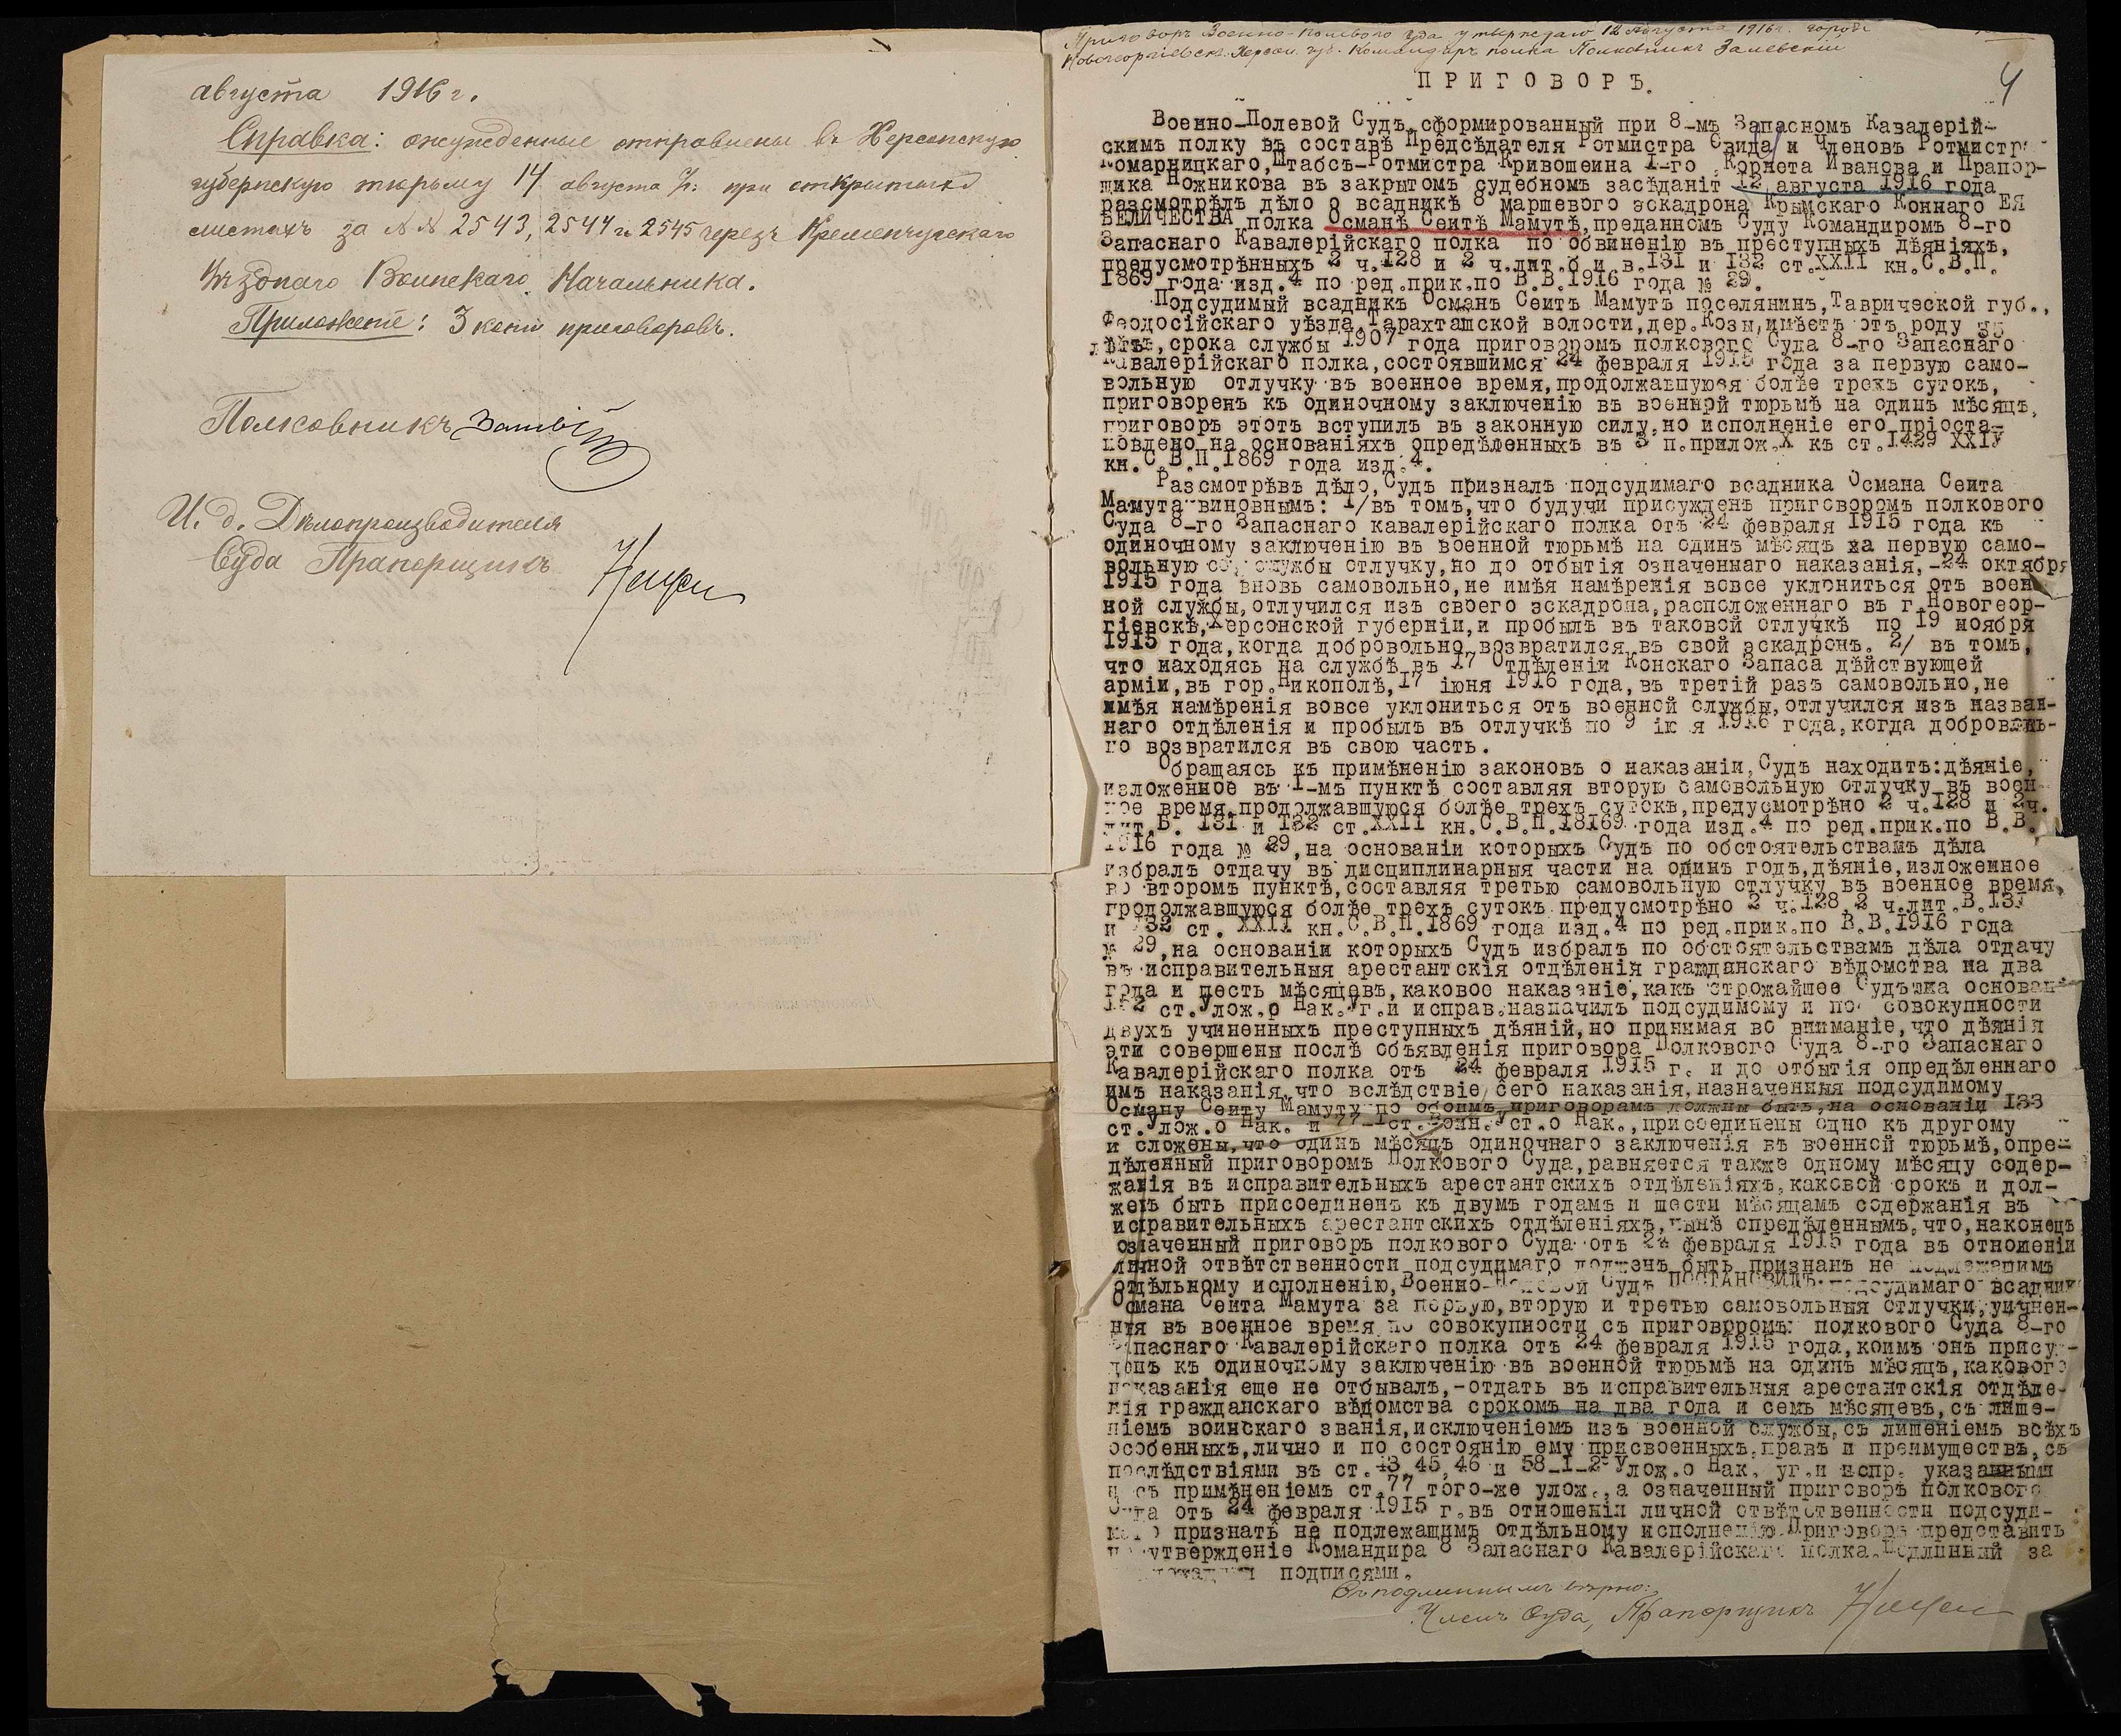 августа 1916 г.
Справка: осужденные отправлены въ Херсонскую
губернскую тюрьму 14 августа с/г. при открытыхъ
листахъ за №№ 2543, 2544 и 2545 черезъ Кременчугскаго
Уѣзднаго Воинскаго Начальника.
Приложенiе: 3 копiи приговоровъ.
Полковникъ
И. д. Дѣлопроизводителя
Суда Прапорщикъ
Приговоръ Военно-Полевого Суда утверждаю 12 Августа 1916 г. городъ
Новогеоргiевскъ Херсон. губ. Командиръ полка Полковникъ Залевскiй
4
ПРИГОВОРЪ.
Военно-Полевой Судъ, сформированный при 8-мъ Запасномъ Кавалерiй-
скимъ полку въ составѣ Предсѣдателя Ротмистра Свида и Членовъ Ротмистра
Комарницкаго, Штабсъ-Ротмистра Кривошеина I-го, Корнета Иванова и Прапор-
щика Ножникова въ закрытомъ судебномъ засѣданiт 12 августа 1916 года
разсмотрѣлъ дѣло о всадникѣ 8 маршевого эскадрона Крымскаго Коннаго ЕЯ
ВЕЛИЧЕСТВА полка Османѣ Сеитѣ Мамутѣ, преданномъ Суду Командиромъ 8-го
Запаснаго Кавалерiйскаго полка по обвиненiю въ преступныхъ дѣянiяхъ,
предусмотрѣнныхъ 2 ч.128 и 2 ч.лит.б и в.131 и 132 ст.XXII кн.С.В.П.
1869 года изд.4 по ред.прик.по В.В.1916 года № 29.
Подсудимый всадникъ Османъ Сеитъ Мамутъ поселянинъ, Таврической губ.,
Феодосiйскаго уѣзда, Тарахташской волости, дер.Козы, имѣетъ отъ роду
лѣтъ, срока службы 1907 года приговоромъ полкового Суда 8-го Запаснаго
Кавалерiйскаго полка, состоявшимся 24 февраля 1915 года за первую само-
вольную отлучку въ военное время, продолжавшуюся болѣе трехъ сутокъ,
приговоренъ къ одиночному заключенiю въ военной тюрьмѣ на одинъ мѣсяцъ,
приговоръ этотъ вступилъ въ законную силу, но исполненiе его прiоста-
новлено на основанiяхъ опредѣленныхъ въ 3 п.прилож.X къ ст.1429 XXIV
кн.С.В.П.1869 года изд.4.
Разсмотрѣвъ дѣло, Судъ призналъ подсудимаго всадника Османа Сеита
Мамута виновнымъ: 1/ въ томъ, что будучи присужденъ приговоромъ полкового
Суда 8-го Запаснаго кавалерiйскаго полка отъ 24 февраля 1915 года къ
одиночному заключенiю въ военной тюрьмѣ на одинъ мѣсяцъ за первую само-
вольную со службы отлучку, но до отбытiя означеннаго наказанiя, -24 октября
1915 года вновь самовольно, не имѣя намѣренiя вовсе уклониться отъ воен-
ной службы, отлучился изъ своего эскадрона, расположеннаго въ г.Новогеор-
гiевскѣ, Херсонской губернiи, и пробылъ въ таковой отлучкѣ по 19 ноября
1915 года, когда добровольно возвратился въ свой эскадронъ. 2/ въ томъ,
что находясь на службѣ въ 17 Отдѣленiи Конскаго Запаса дѣйствующей
армiи, въ гор.Никополѣ, 17 iюня 1916 года, въ третiй разъ самовольно, не
имѣя намѣренiя вовсе уклониться отъ военной службы, отлучился изъ назван-
наго отдѣленiя и пробылъ въ отлучкѣ по 9 1916 года, когда добровль-
го возвратился въ свою часть.
Обращаясь къ примѣненiю законовъ о наказанiи, Судъ находитъ: дѣянiе,
изложенное въ 1-мъ пунктѣ составляя вторую самовольную отлучку въ воен-
ное время, продолжавшуюся болѣе трехъ сутокъ, предусмотрѣно 2 ч.128 и 2ч.
лит.Б. 131 и 132 ст.XXII кн.С.В.П.18169 года изд.4 по ред.прик.по В.В.
1916 года № 29, на основанiи которыхъ Судъ по обстоятельствамъ дѣла
избралъ отдачу въ дисциплинарныя части на одинъ годъ, дѣянiе, изложенное
во второмъ пунктѣ, составляя третью самовольную отлучку въ военное время,
продолжавшуюся болѣе трехъ сутокъ предусмотрѣно 2 ч.128, 2 ч.лит.В.131
и 132 ст. XXII кн.С.В.П.1869 года изд.4 по ред.прик.по В.В.1916 года
№ 29, на основанiи которыхъ Судъ избралъ по обстоятельствамъ дѣла отдачу
въ исправительныя арестантскiя отдѣленiя гражданскаго вѣдомства на два
года и шесть мѣсяцевъ, каковое наказанiе, какъ строжайшее Судъ на основан
152 ст.Улож.о Нак.Уг.и исправ.назначилъ подсудимому и по совокупности
двухъ учиненныхъ преступныхъ дѣянiй, но принимая во вниманiе, что дѣянiя
эти совершены послѣ объявленiя приговора Полкового Суда 8-го Запаснаго
Кавалерiйскаго полка отъ 24 февраля 1915 г. и до отбытiя опредѣленнаго
имъ наказанiя, что вслѣдствiе сего наказанiя, назначенныя подсудимому
Осману Сеиту Мамуту по обоимъ приговорамъ должны быть, на основанiи 133
ст.Улож.о Нак. и 77-1 ст.Воин.Уст.о Нак., присоединены одно къ другому
и сложены, что одинъ мѣсяцъ одиночнаго заключенiя въ военной тюрьмѣ, опре-
дѣленный приговоромъ Полкового Суда, равняется также одному мѣсяцу содер-
жанiя въ исправительныхъ арестантскихъ отдѣленiяхъ, каковой срокъ и дол-
женъ быть присоединенъ къ двумъ годамъ и шести мѣсяцамъ содержанiя въ
исправительныхъ арестантскихъ отдѣленiяхъ, нынѣ опредѣленнымъ, что, наконецъ
означенный приговоръ полкового Суда отъ 24 февраля 1915 года въ отношенiи
личной отвѣтственности подсудимаго долженъ быть признанъ не подлежащимъ
отдѣльному исполненiю, Военно-Полевой Судъ ПОСТАНОВИЛЪ: подсудимаго всадник
Османа Сеита Мамута за первую, вторую и третью самовольныя отлучки, уичнен-
ныя въ военное время по совокупности съ приговоромъ: полкового Суда 8-го
Запаснаго Кавалерiйскаго полка отъ 24 февраля 1915 года, коимъ онъ прису-
жденъ къ одиночному заключенiю въ военной тюрьмѣ на одинъ мѣсяцъ, какового
наказанiя еще не отбывалъ, -отдать въ исправительныя арестантскiя отдѣле-
нiя гражданскаго вѣдомства срокомъ на два года и семь мѣсяцевъ, съ лише-
нiемъ воинскаго званiя, исключенiемъ изъ военной службы, съ лишенiемъ всѣхъ
особенныхъ, лично и по состоянiю ему присвоенныхъ, правъ и преимуществъ, съ
послѣдствiями въ ст.43, 45, 46 и 58-1-2 Улож.о Нак. уг.и испр. указанными
и съ примѣненiемъ ст.77 того-же улож., а означенный приговоръ полкового
Суда отъ 24 февраля 1915 г.въ отношенiи личной отвѣтственности подсуди-
маго признать не подлежащимъ отдѣльному исполненiю. Приговоръ представить
на утвержденiе Командира 8 Запаснаго Кавалерiйскаго полка. Подлинный за
надлежащими подписями.
Съ подлиннымъ вѣрно:
Членъ Суда, Прапорщикъ